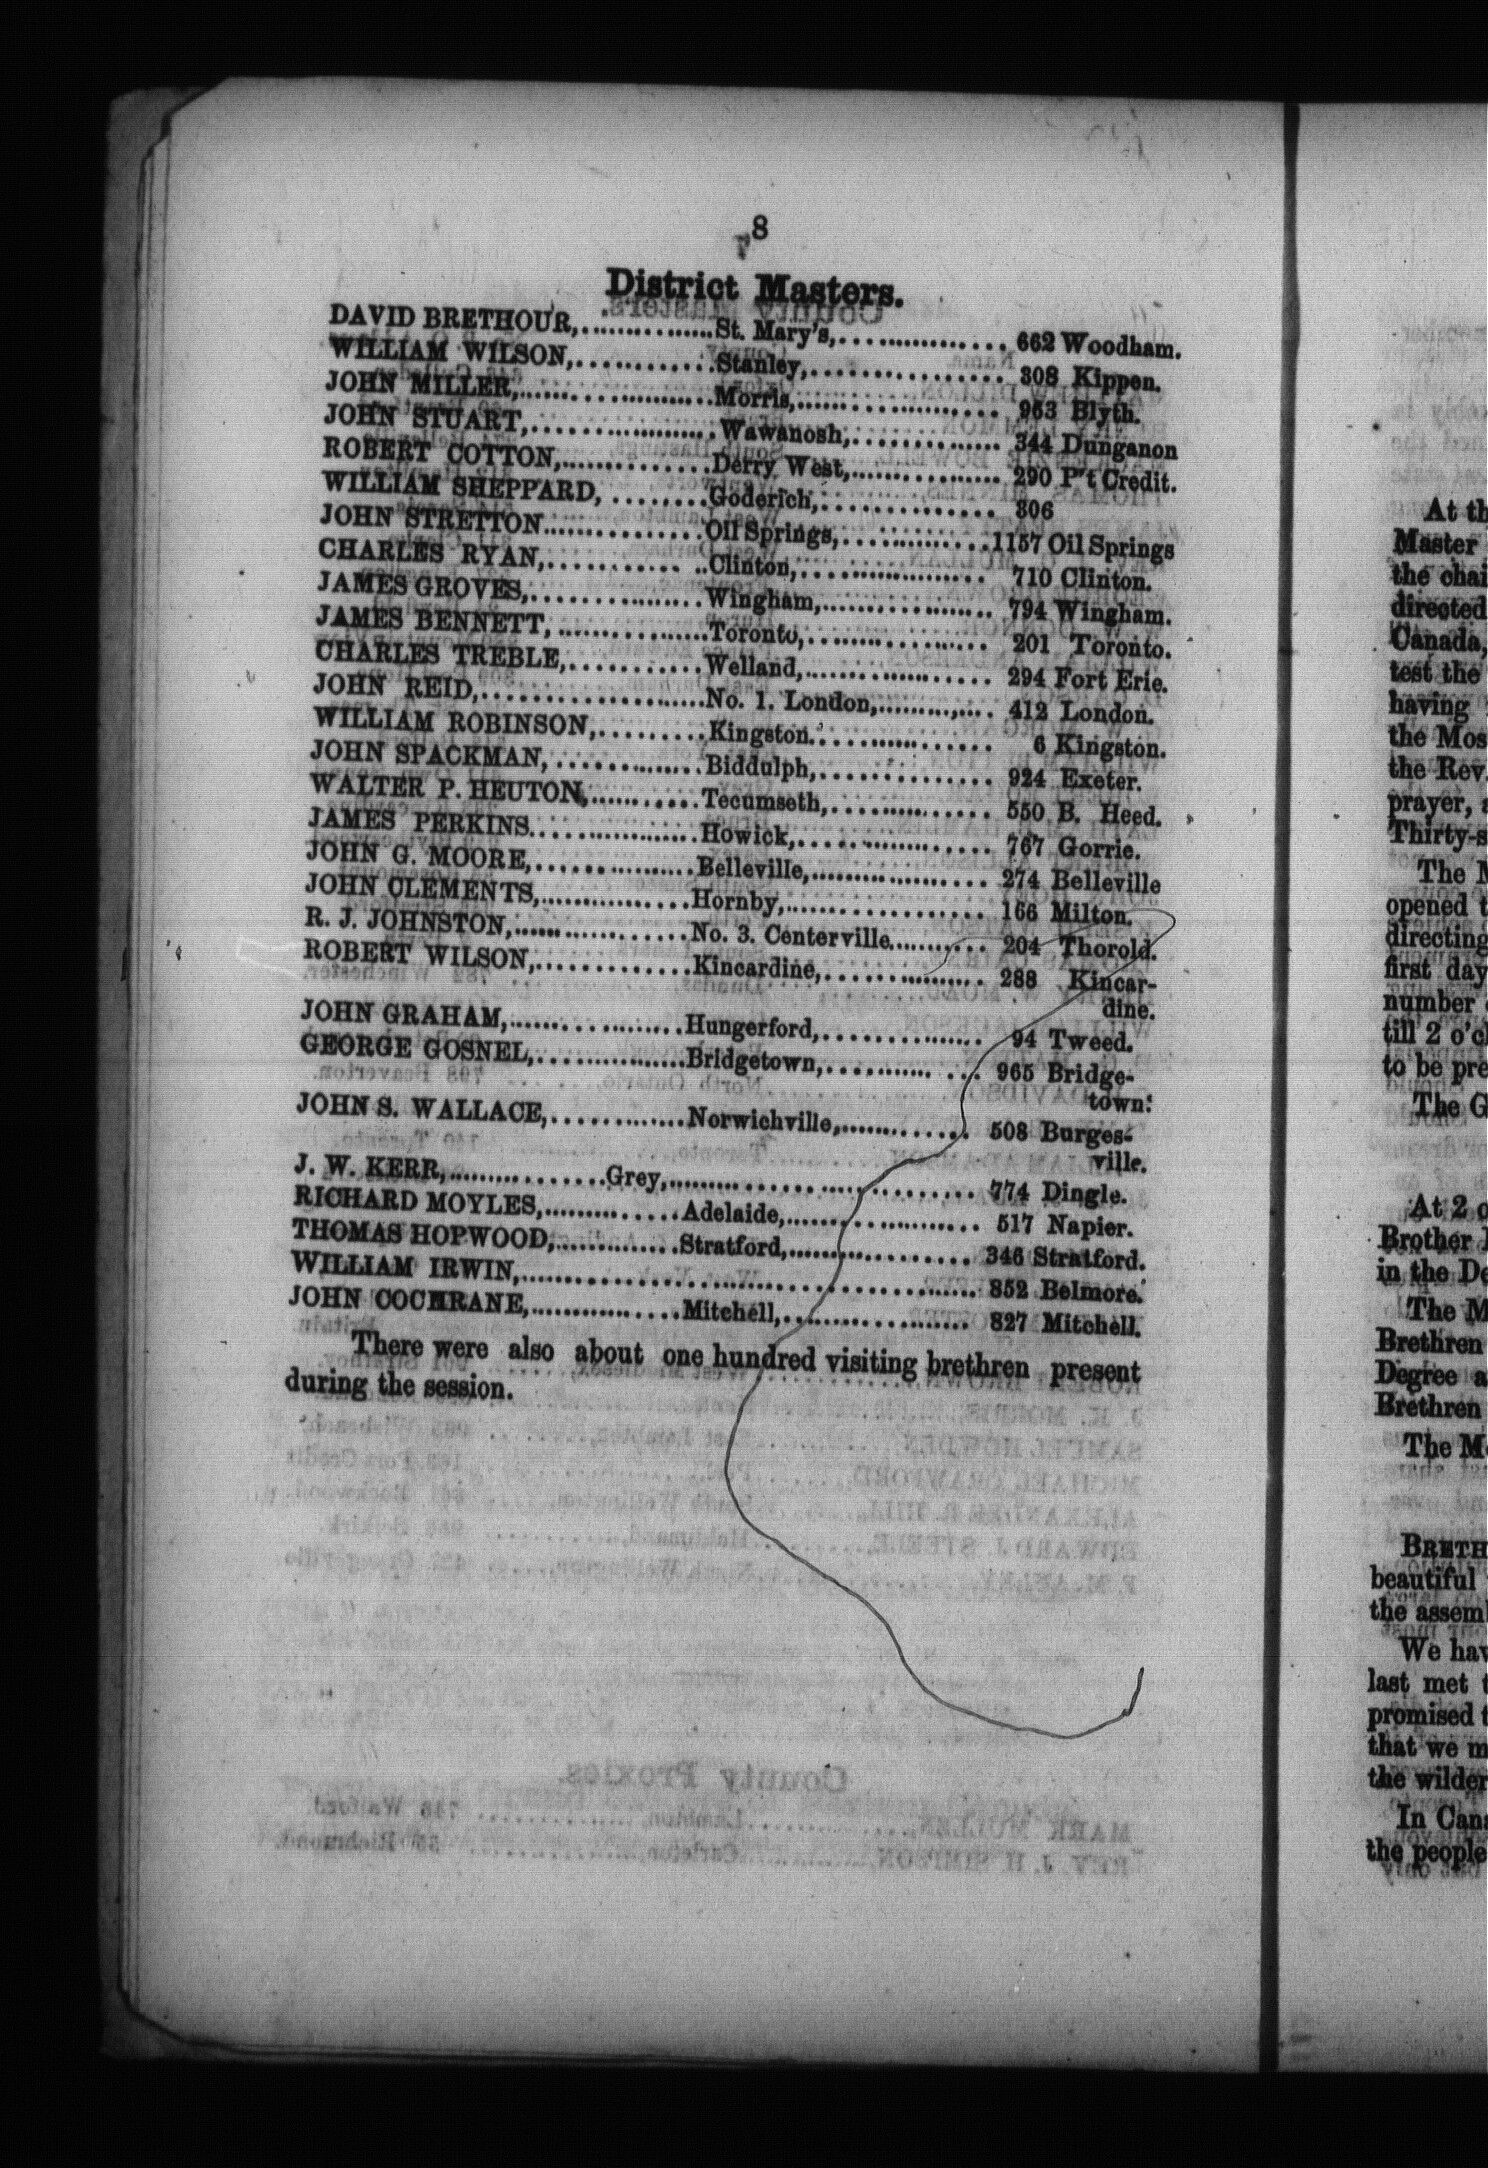 8
District Masters.
DAVID BRETHOUR,...............St. Mary's,............... 662 Woodham.
WILLIAM WILSON,............Stanley,................ 308 Kippen.
JOHN MILLER,.................Morris,................. 963 Blyth.
JOHN STUART,................Wawanosh,............. 344 Dunganon
ROBERT COTTON,.............Derry West,............... 290 P't Credit.
WILLIAM SHEPPARD, ........Goderich,............... 306
JOHN STRETTON...............Oil Springs,.............1157 Oil Springs
CHARLES RYAN,........... ..Clinton,................ 710 Clinton.
JAMES GROVES,...............Wingham,............... 794 Wingham.
JAMES BENNETT, .............Toronto,................ 201 Toronto.
CHARLES TREBLE,............Welland,................ 294 Fort Erie.
JOHN REID,...................No. 1. London,............. 412 London.
WILLIAM ROBINSON,.........Kingston................ 6 Kingston.
JOHN SPACKMAN,.............Biddulph,............... 924 Exeter.
WALTER P. HEUTON,..........Tecumseth,.............. 550 B. Heed.
JAMES PERKINS...............Howick,................. 767 Gorrie.
JOHN G. MOORE,..............Belleville,............... 274 Belleville
JOHN CLEMENTS,.............Hornby,................. 166 Milton.
R. J. JOHNSTON,...............No. 3. Centerville.......... 204 Thorold.
ROBERT WILSON,.............Kincardine,.............. 288 Kincar-
dine.
JOHN GRAHAM,...............Hungerford,.............. 94 Tweed.
GEORGE GOSNEL,.............Bridgetown,.......... ... 965 Bridge-
town.
JOHN S. WALLACE,............Norwichville,............ 508 Burges-
ville.
J. W. KERR,..............Grey,.......................... 774 Dingle.
RICHARD MOYLES,............Adelaide,................ 517 Napier.
THOMAS HOPWOOD,...........Stratford,................ 346 Stratford.
WILLIAM IRWIN,........................................ 852 Belmore.
JOHN COCHRANE,.............Mitchell,................ 827 Mitchell.
There were also about one hundred visiting brethren present
during the session.
At th
Master
the chai
directed
Canada,
test the
having
the Mos
the Rev.
prayer, a
Thirty-s
The M
opened t
directing
first day
number
till 2 o'cl
to be pre
The G
At 2 o
Brother
in the De
The M
Brethren
Degree a
Brethren
The M
BRETH
beautiful
the assem
We hav
last met t
promised t
that we m
the wilder
In Cana
the people